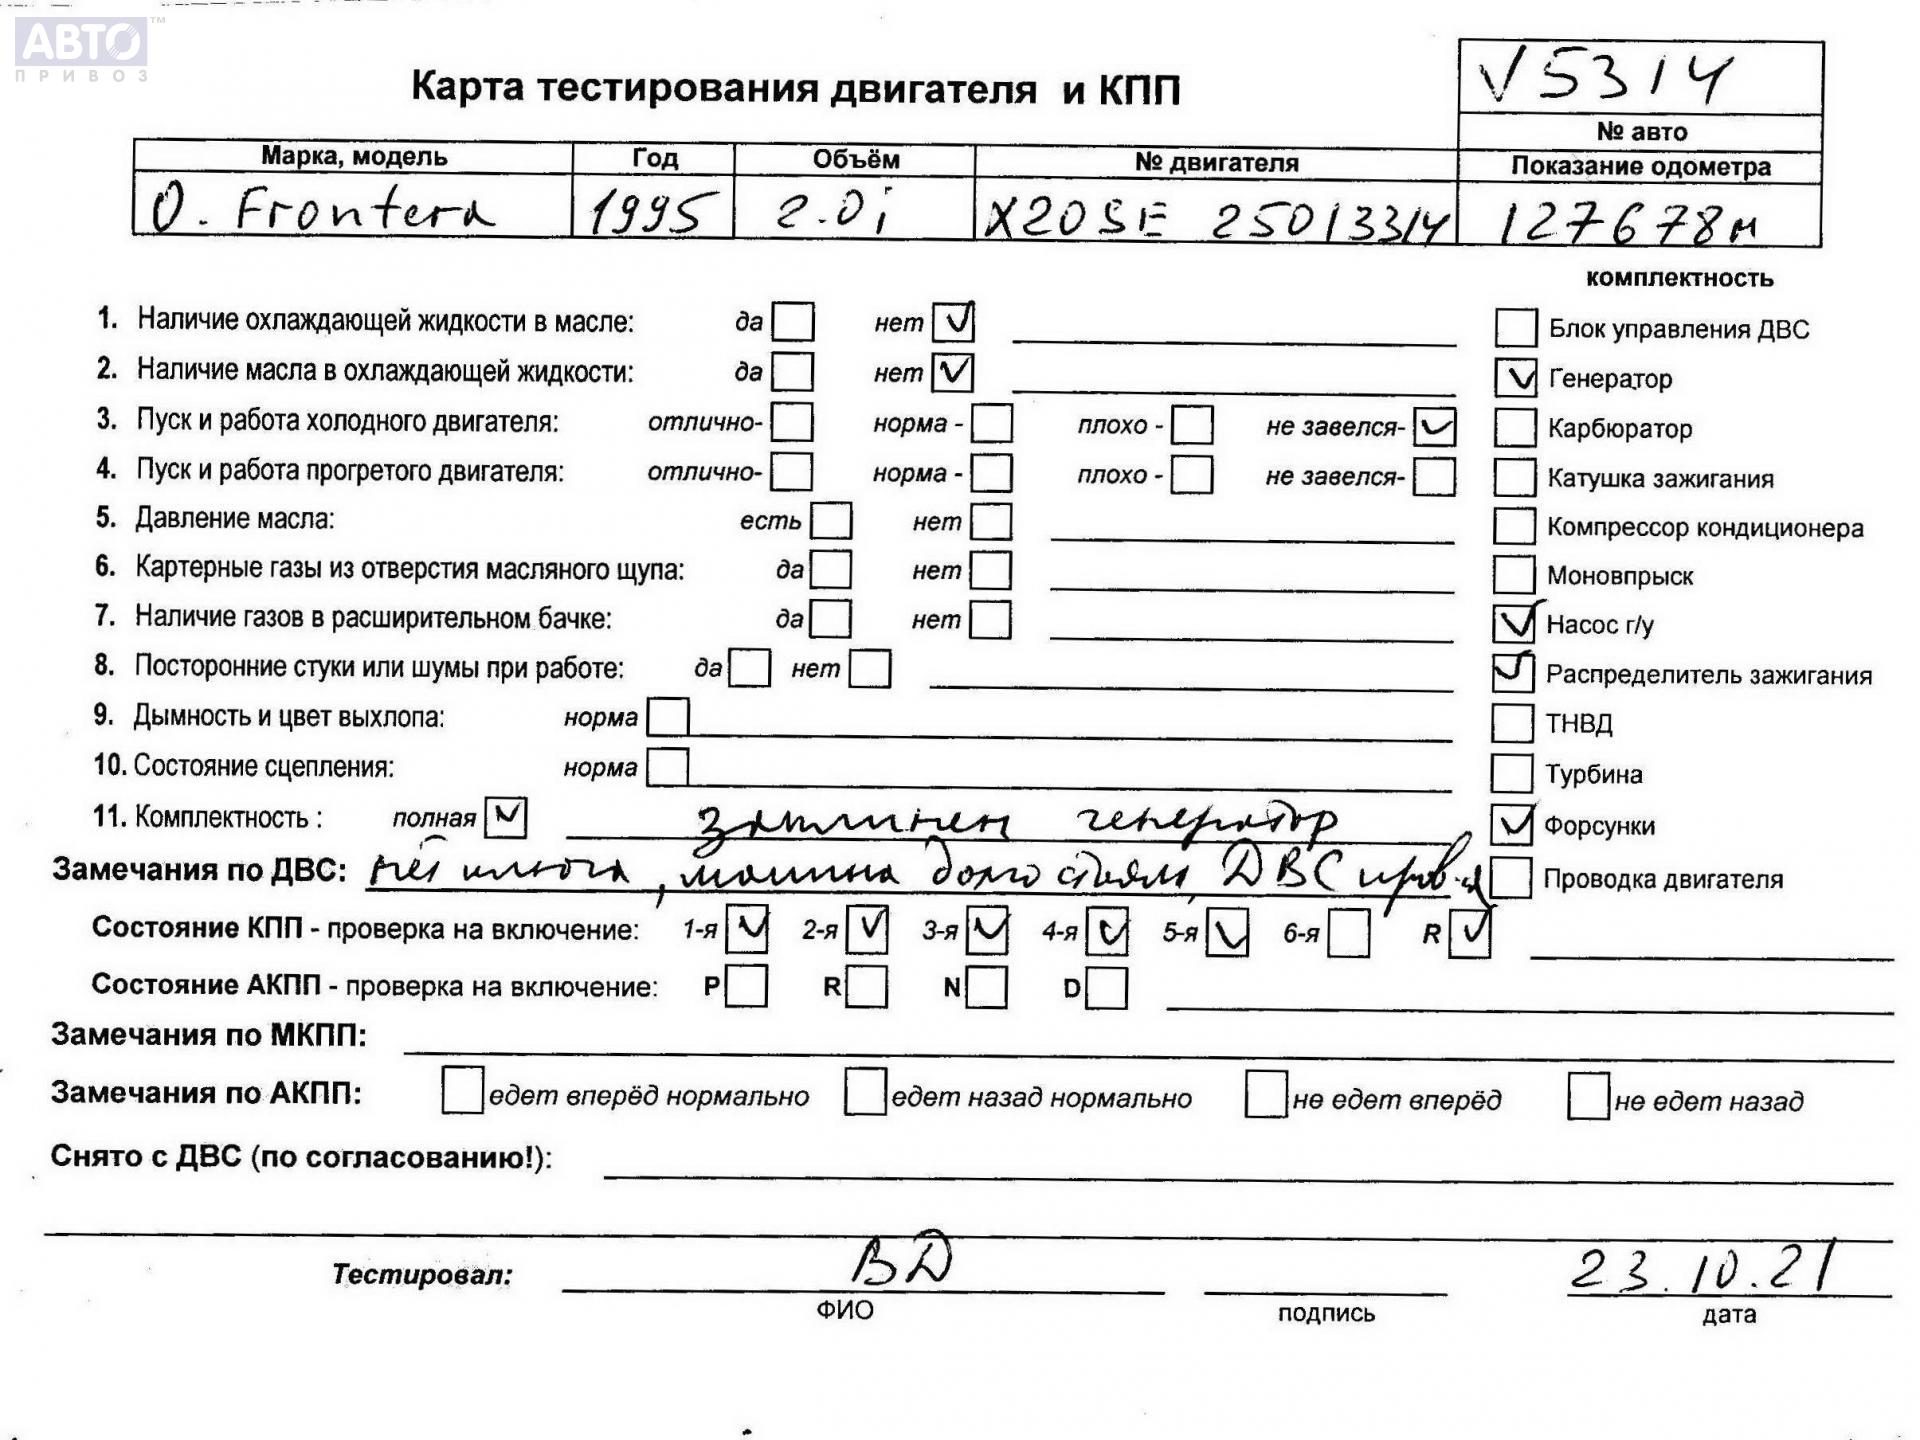 АВТО™
ПРИВОЗ
Карта тестирования двигателя и КПП
V5314
№ авто
Марка, модель Год Объём № двигателя Показание одометра
O. Frontera 1995 2.0i X20SE 25013314 127678м
комплектность
1. Наличие охлаждающей жидкости в масле: да нет ✓
Блок управления ДВС
2. Наличие масла в охлаждающей жидкости: да нет ✓
✓ Генератор
3. Пуск и работа холодного двигателя: отлично- норма - плохо - не завелся- ✓
Карбюратор
4. Пуск и работа прогретого двигателя: отлично- норма - плохо - не завелся-
Катушка зажигания
5. Давление масла: есть нет
Компрессор кондиционера
6. Картерные газы из отверстия масляного щупа: да нет
Моновпрыск
7. Наличие газов в расширительном бачке: да нет
✓ Насос г/у
8. Посторонние стуки или шумы при работе: да нет
✓ Распределитель зажигания
9. Дымность и цвет выхлопа: норма
ТНВД
10. Состояние сцепления: норма
Турбина
11. Комплектность : полная ✓ заклинен генератор
✓ Форсунки
Замечания по ДВС: нет ключа, машина долго стояла, ДВС
Проводка двигателя
Состояние КПП - проверка на включение: 1-я ✓ 2-я ✓ 3-я ✓ 4-я ✓ 5-я ✓ 6-я R ✓
Состояние АКПП - проверка на включение: P R N D
Замечания по МКПП:
Замечания по АКПП: едет вперёд нормально едет назад нормально не едет вперёд не едет назад
Снято с ДВС (по согласованию!):
Тестировал: ВД 23.10.21
ФИО подпись дата